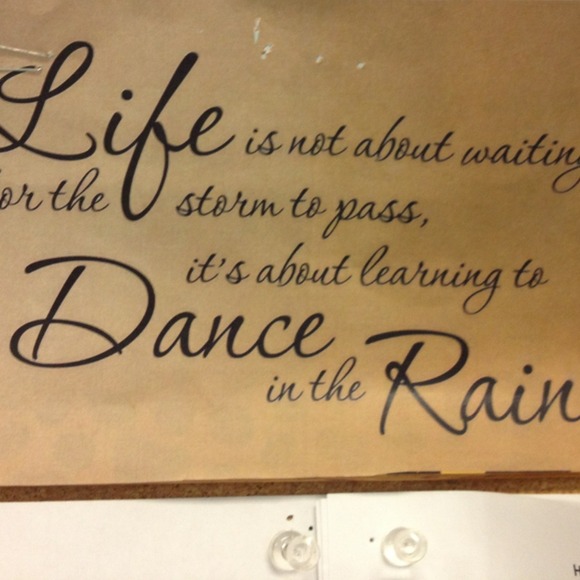 Life is not about waiting
for the storm to pass,
it's about learning to
Dance
in the Rain
H